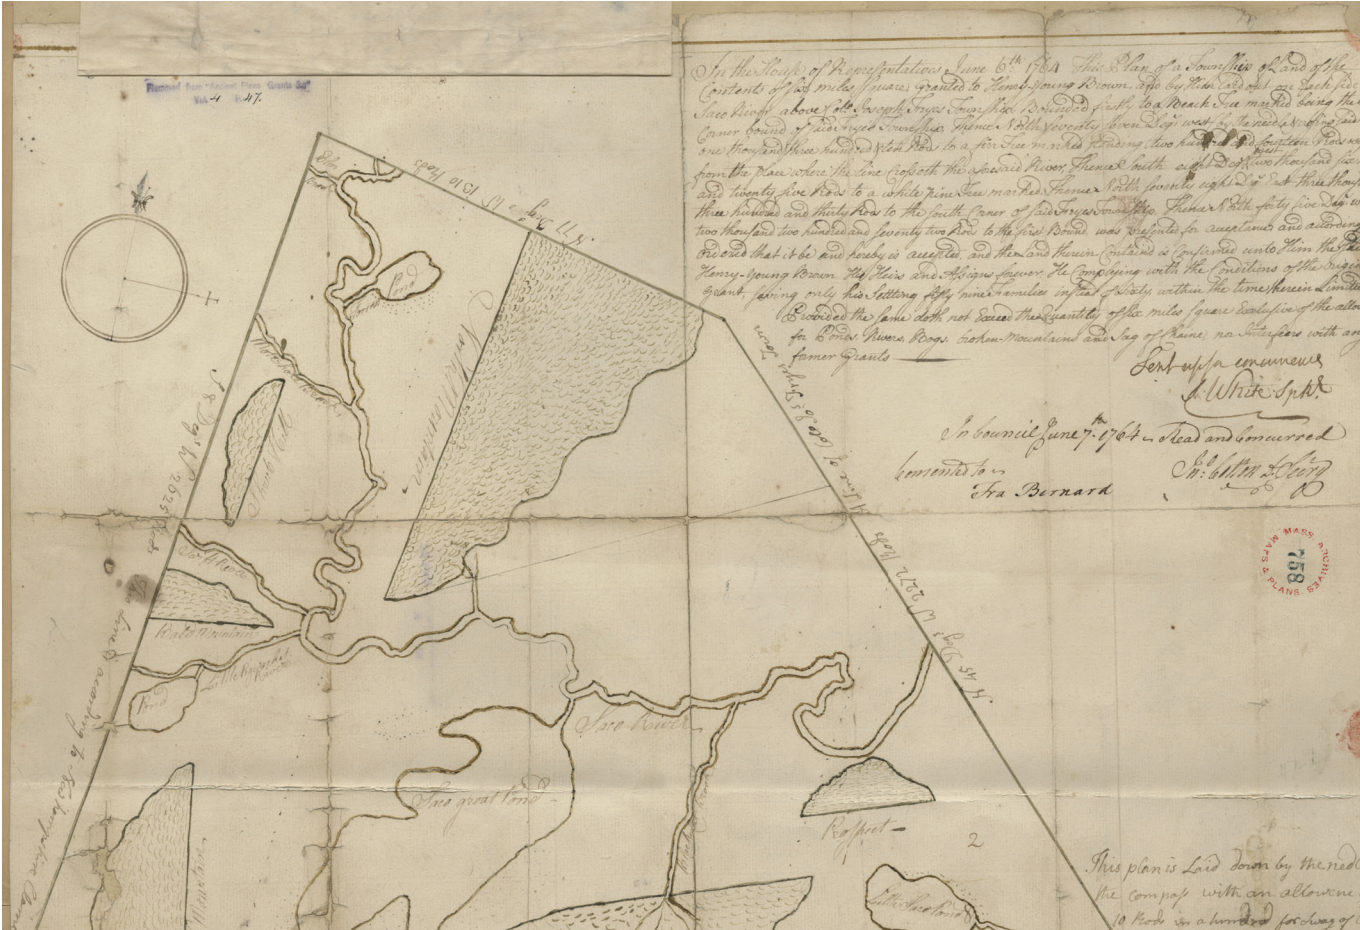 Removed from "Ancient Plans Grants &c"
Vol. 4 P. 47.
In the House of Representatives June 6th 1764 This Plan of a Township of Land of the
Contents of six miles square, Granted to Henry-Young Brown, and by Him Laid out on Each side
Saco River above Colo Joseph Fryes Township, Bounded firstly to a Beach Tree marked being the
Corner bound of said Fryes Township, Thence North seventy seven Degs west by the
one thousand three hundred & ten Rods to a fir Tree marked standing two hundred and fourteen Rods
from the place where the line Crosseth the aforesaid River, Thence South eight Degs west two thousand six
and twenty five Rods to a white pine Tree marked Thence North seventy eight Degs East three thous
three hundred and thirty Rods to the South Corner of said Fryes Township, Thence North forty five Degs w
two thousand two hundred and seventy two Rods to the first Bound, was presented for acceptance and according
ordered that it be and hereby is accepted, and the Land therein Contained is Confirmed unto Him the said
Henry-Young Brown His Heirs and Assigns forever, He Complying with the Conditions of the Origin
Grant, saving only his Settling fifty nine Families instead of Sixty, within the time therein Limited
Provided the same doth not Exceed the Quantity of six miles square Exclusive of the allow
for Ponds, Rivers, Bogs, broken Mountains and Sag of Chaine, nor Interfears with any
former Grants
Sent up for concurrence
S. White Spkr.
In Council June 7th 1764 Read and Concurred
Jno. Cotton D. Secry
Consented to
Fra Bernard
N 77 Degs W 1310 Rods
Pond
S 8 Degs W 2625 Rods
Line of Colo Jos Fryes Town
N 45 Degs W 2272 Rods
This Line is according to
Bald Mountain
Little
River
Pond
Saco River
Saco great Pond
Mountain
Prospect
2
Little Saco Pond
MASS. ARCHIVES.
MAPS & PLANS.
758
This plan is Laid down by the ned
the compass with an allowenc
10 Rods in a hundred for Swag of C